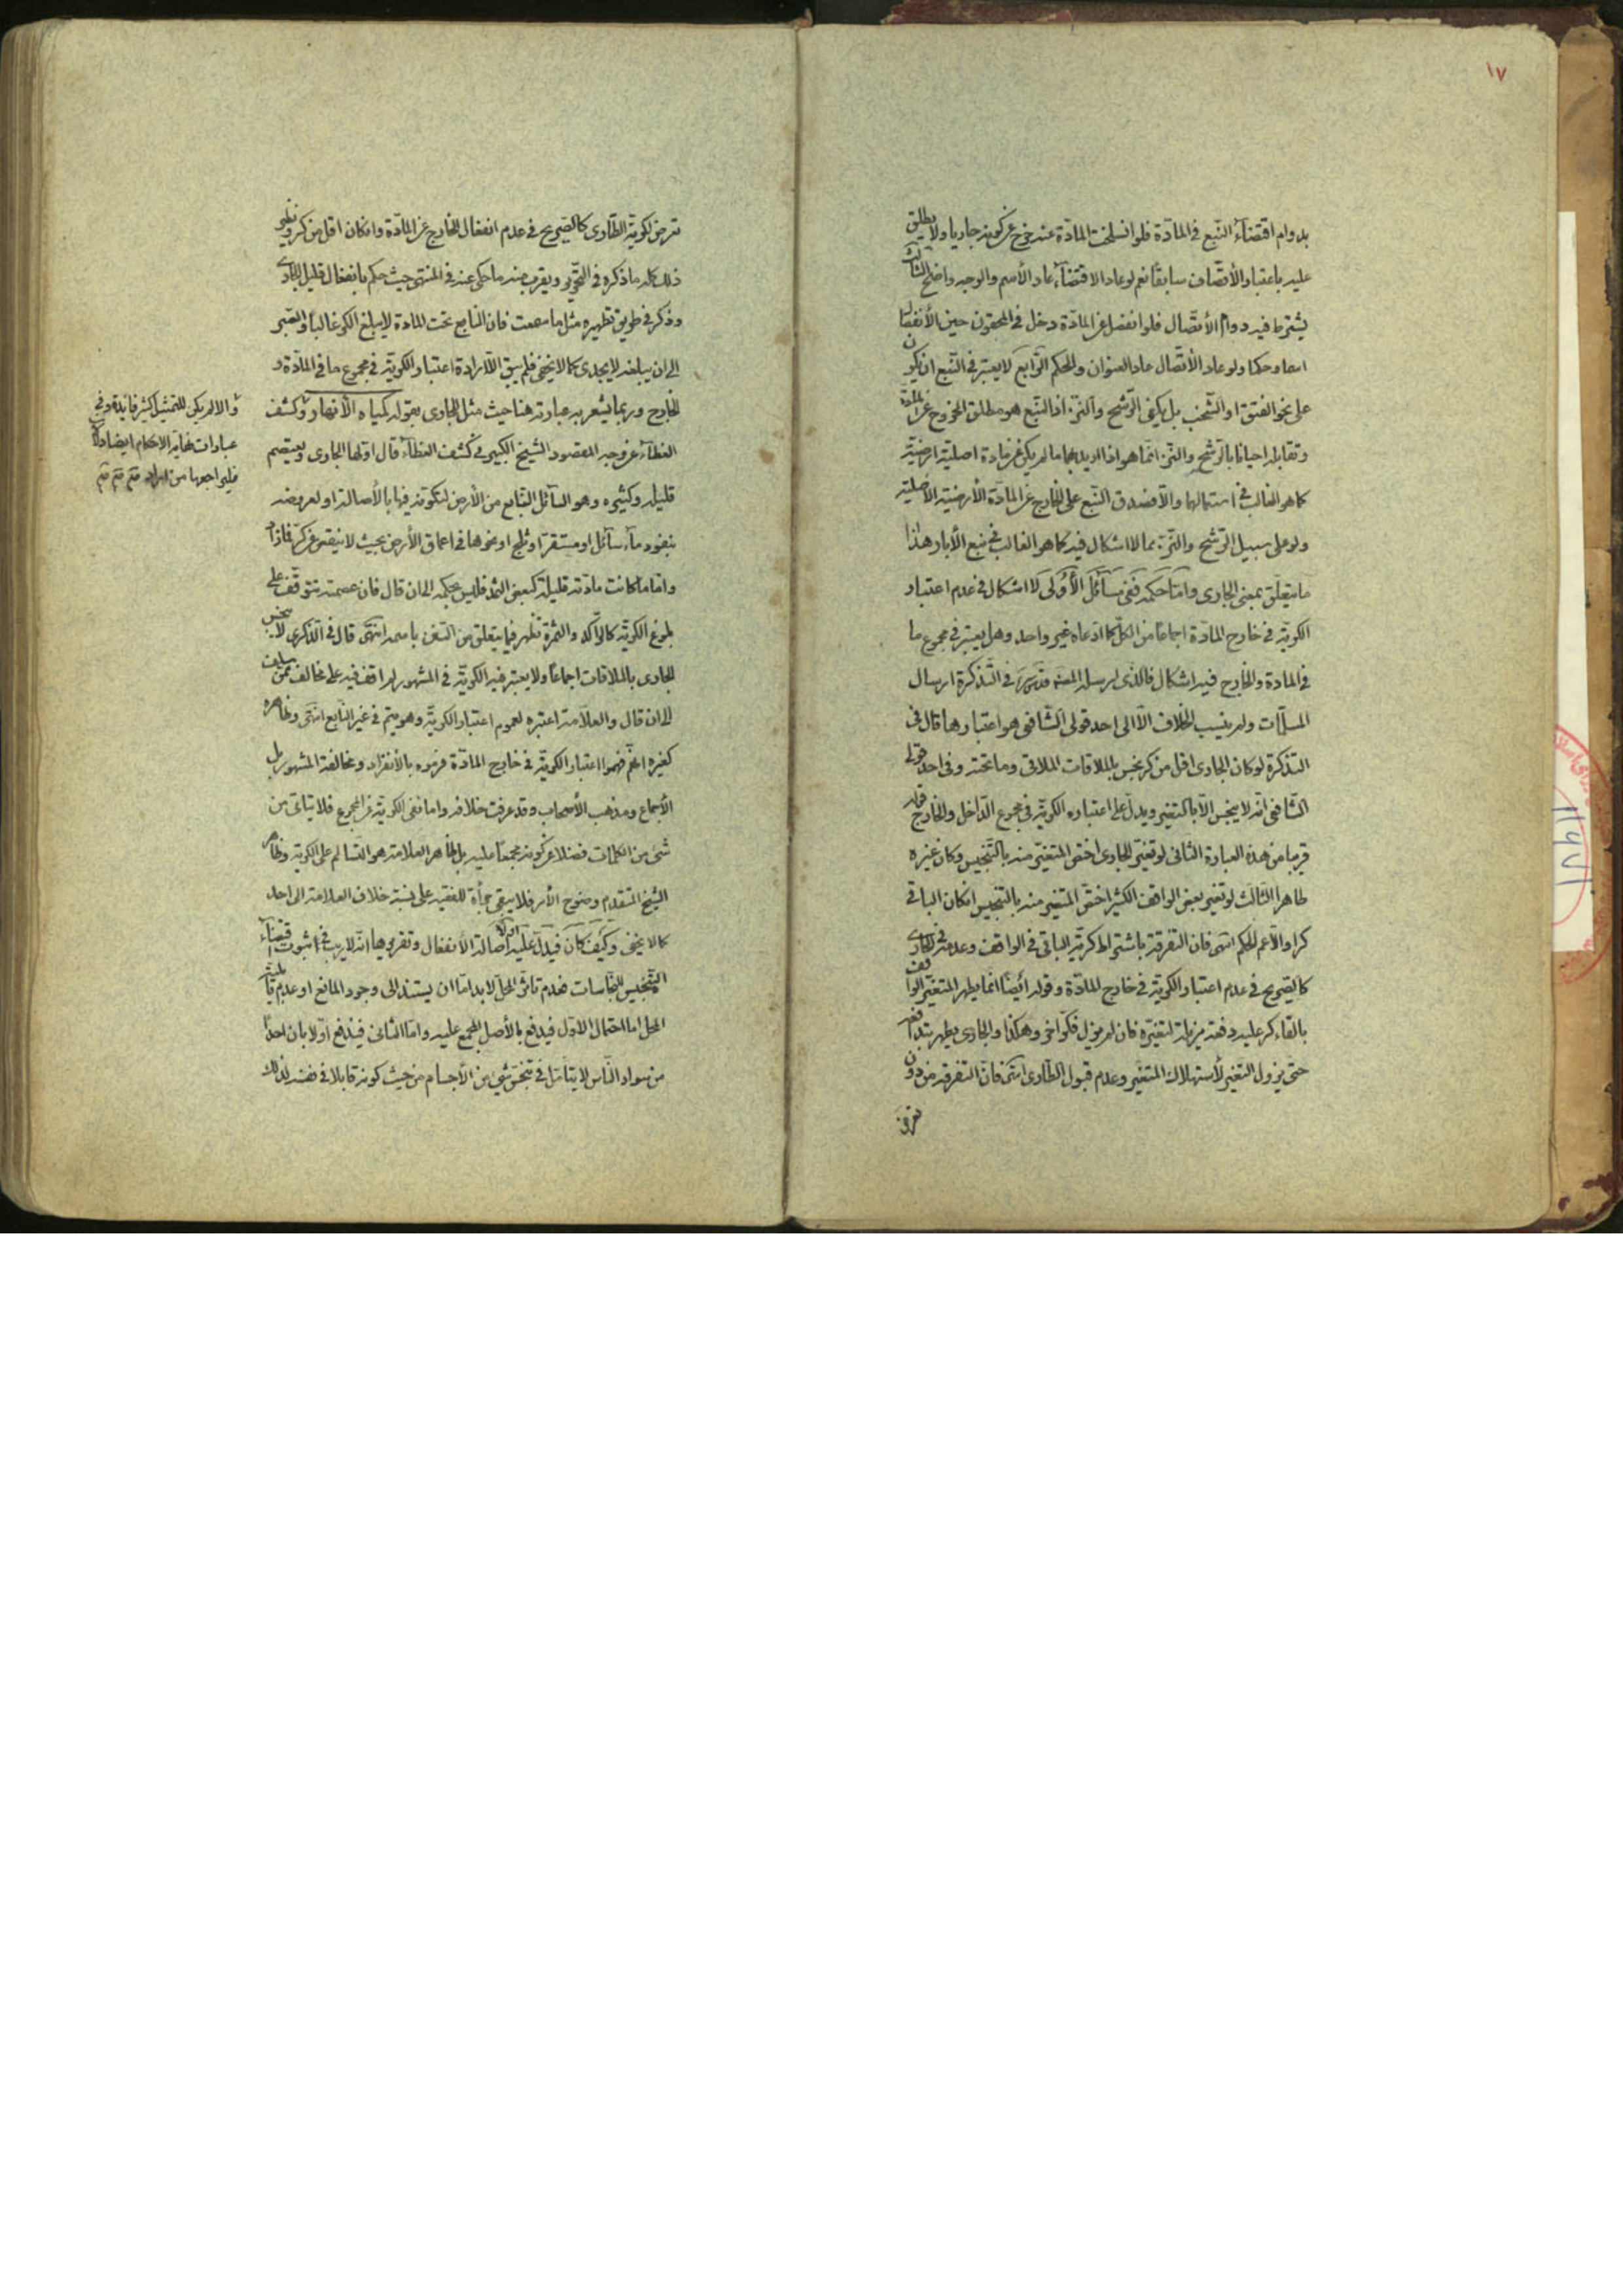 ١٧
بدوام اقتضاء النبع فى المادّة فلو انسلخت المادّة عنه خرج عن كونه جاريا ولا يطلق
عليه باعتبار الأتصاف سابقا نعم لو عاد الاقتضاء عاد الأسم والوجه واضح الثالث
يشترط فيه دوام الأتصال فلو انفصل عن المادّة دخل فى المحقون حين الأنفصال
اسما وحكما ولو عاد الأتصال عاد العنوان والحكم الرّابع لا يعتبر فى النبع ان يكون
على نحو الفتق او الشخب بل يكفى الرّشح والنزّ اذ النبع هو مطلق الخروج عن المادة
وتقابله احيانا بالرّشح والنزّ انما هو اذا اريد بهما ما لم يكن عن مادة اصلية ارضيّة
كما هو الغالب فى استعمالهما والّا فصدق النبع على الخارج عن المادّة الأرضيّة الأصلية
ولو على سبيل الرّشح والنزّ مما لا اشكال فيه كما هو الغالب فى نبع الأبار هذا
ما يتعلّق بمعنى الجارى وامّا حكمه ففى مسائل الأولى لا اشكال فى عدم اعتبار
الكريّة فى خارج المادّة اجماعا من الكل كما ادعاه غير واحد وهل يعتبر فى مجموع ما
فى المادة والخارج فيه اشكال فالذى ارسله المصنف قدس سره فى التذكرة ارسال
المسلّمات ولم ينسب الخلاف الّا الى احد قولى الشّافعى هو اعتبارها قال فى
التذكرة لو كان الجارى اقل من كر نجس بالملاقات الملاقى وما تحته وفى احد قولى
الشّافعى انّه لا ينجس الّا بالتغير ويدلّ على اعتباره الكريّة فى مجموع الدّاخل والخارج قوله
قريبا من هذه العبارة الثانى لو تغيّر الجارى اختص المتغيّر منه بالتنجيس وكان غيره
طاهرا الثّالث لو تغير بعض الواقف الكثير اختصّ المتغير منه بالتنجيس ان كان الباقى
كرا والّا عم الحكم انتهى فان التفرقة باشتراط كريّة الباقى فى الواقف وعدمه فى الجارى
كالصّريح فى عدم اعتبار الكريّة فى خارج المادّة وقوله ايضا انما يطهر المتغيّر الواقف
بالقاء كر عليه دفعة مزيلة لتغيّره فان لم يزل فكر اخر وهكذا والجارى يطهر بتدافعه
حتى يزول التغير لأستهلاك المتغيّر وعدم قبول الطّارى انتهى فانّ التفرقة من دون
تعرض
تعرض لكريّة الطّارى كالصّريح فى عدم انفعال الخارج عن المادّة وان كان اقل من كر ونظير
ذلك كله ما ذكره فى التحرير ويقرب منه ما حكى عنه فى المنتهى حيث حكم بانفعال قليل الجارى
وذكر فى طريق تطهيره مثل ما سمعت فان النابع تحت المادة لا يبلغ الكر غالبا والصّبر
الى ان يبلغه لا يجدى كما لا يخفى فلم يبق الّا ارادة اعتبار الكريّة فى مجموع ما فى المادّة و
الخارج وربما يشعر به عبارته هنا حيث مثل الجارى بقوله كمياه الأنهار وكشف
الغطاء عن وجه المقصود الشيخ الكبير فى كشف الغطاء قال اولها الجارى ويعتصم
قليله وكثيره وهو السآئل النّابع من الأرض لتكونه فيها بالأصالة او لعروضه
بنفود مآء سآئل او مستقر او ثلج او نحوها فى اعماق الأرض بحيث لا ينقص عن كر فمازاد
وامّا ما كانت مادّته قليلة كبعض الثمد فليس بحكمه الى ان قال فان عصمته تتوقّف على
بلوغ الكريّة كالرّاكد والثمرة تظهر فيما يتعلق من السفن باسمه انتهى قال فى الذكرى لا ينجس
الجارى بالملاقات اجماعا ولا يعتبر فيه الكريّة فى المشهور لم اقف فيه على مخالف ممن سلف
الى ان قال والعلّامة اعتبره لعموم اعتبار الكريّة وهو يتم فى غير النّابع انتهى وظاهره
كغيره انّهم فهموا اعتبار الكريّة فى خارج المادّة فرموه بالأنفراد ومخالفة المشهور بل
الأجماع ومذهب الأصحاب وقد عرفت خلافه واما نفى الكريّة عن المجموع فلا يتاتى من
شئ من الكلمات فضلا عن كونه مجمعا عليه بل ظاهر العلامة هو التسالم على الكرية وظاهر
الشيخ المتقدم وضوح الأمر فلا يبقى جرأة للفقيه على نسبة خلاف العلامة الى احد
كما لا يخفى وكيف كان فيدلّ عليه اوّلا اصالة الأنفعال وتقريرها انّه لا ريب فى ثبوت اقتضاء
التّنجيس للنجاسات فعدم تاثر المحل لا بد امّا ان يستند الى وجود المانع او عدم قابلية
المحل اما احتمال الاوّل فيدفع بالأصل المجمع عليه وامّا الثانى فيدفع اوّلا بان احدا
من سواد النّاس لا يتامّل فى تنجّس شئ من الأجسام من حيث كونه قابلا فى نفسه لذلك
والا لم يكن للتمثيل كثير فائدة وفى
عبارات نهاية الاحكام ايضا دلالة
فليراجعها من اراد